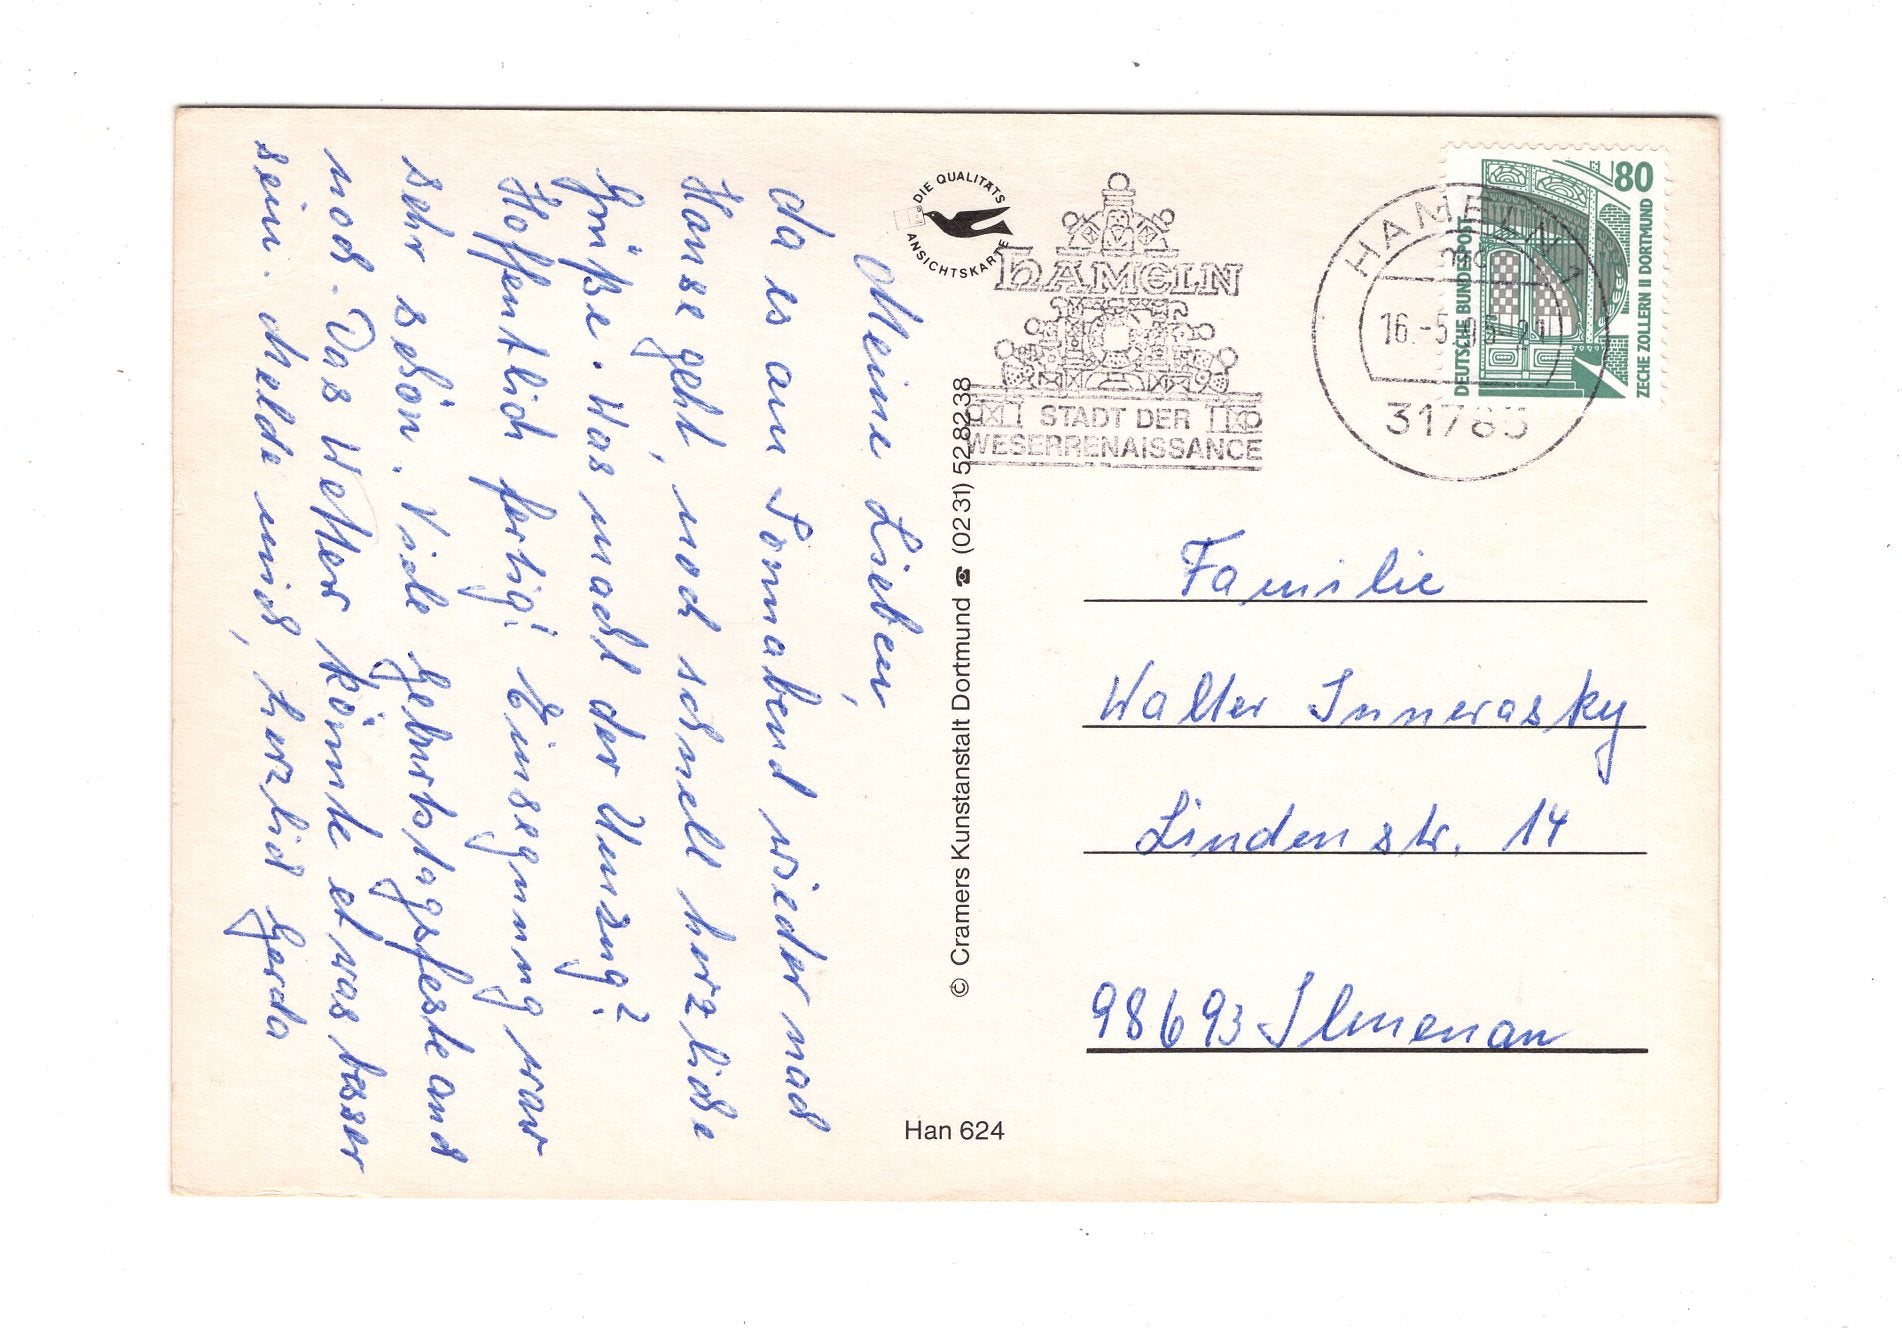 Meine Lieben,
da es am Sonnabend wieder nach
Hause geht, noch schnell herzliche
Grüße. Was macht der Umzug?
Hoffentlich fertig! Einsegnung war
sehr schön. Viele Geburtstagsfeste auch
noch. Das Wetter könnte etwas besser
sein. Melde mich, herzlich Gerda
DIE QUALITÄTS
ANSICHTSKARTE
© Cramers Kunstanstalt Dortmund ☎ (02 31) 52 82 38
Han 624
HAMELN
STADT DER
WESERRENAISSANCE
HAMELN 1
mc
16.-5.96-21
31785
80
DEUTSCHE BUNDESPOST
ZECHE ZOLLERN II DORTMUND
Familie
Walter Innerasky
Lindenstr. 14
98693 Ilmenau